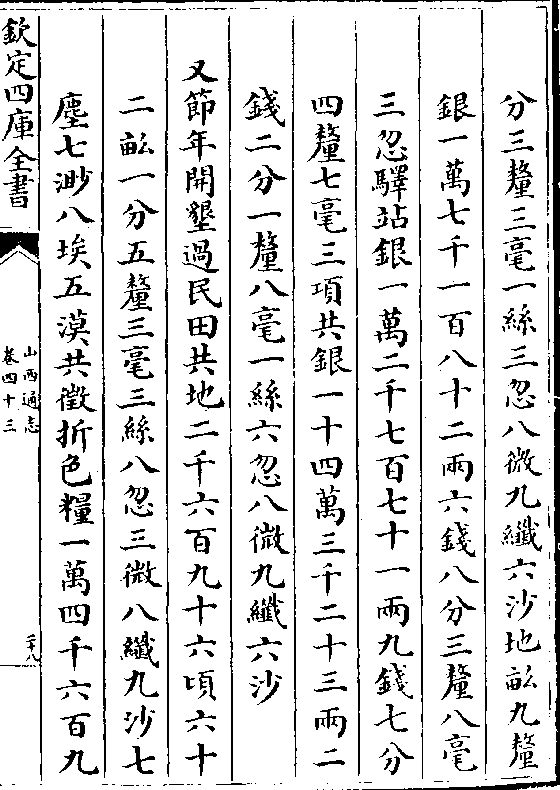 分三釐三毫一絲三忽八微九纖六沙地畝九釐
銀一萬七千一百八十二兩六錢八分三釐八毫
三忽驛站銀一萬二千七百七十一兩九錢七分
四釐七毫三項共銀一十四萬三千二十三兩二
錢二分一釐八毫一絲六忽八微九纖六沙
又節年開墾過民田共地二千六百九十六頃六十
二畝一分五釐三毫三絲八忽三微八纖九沙七
塵七渺八埃五漠共徵折色糧一萬四千六百九
欽定四庫全書
山西通志
卷四十三
二十八